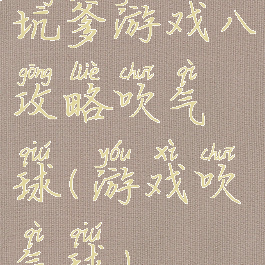 坑爹游戏八
gōng lüè chuī qì
攻略吹气
qiú yóu xì chuī
球(游戏吹
qì qiú
气球)